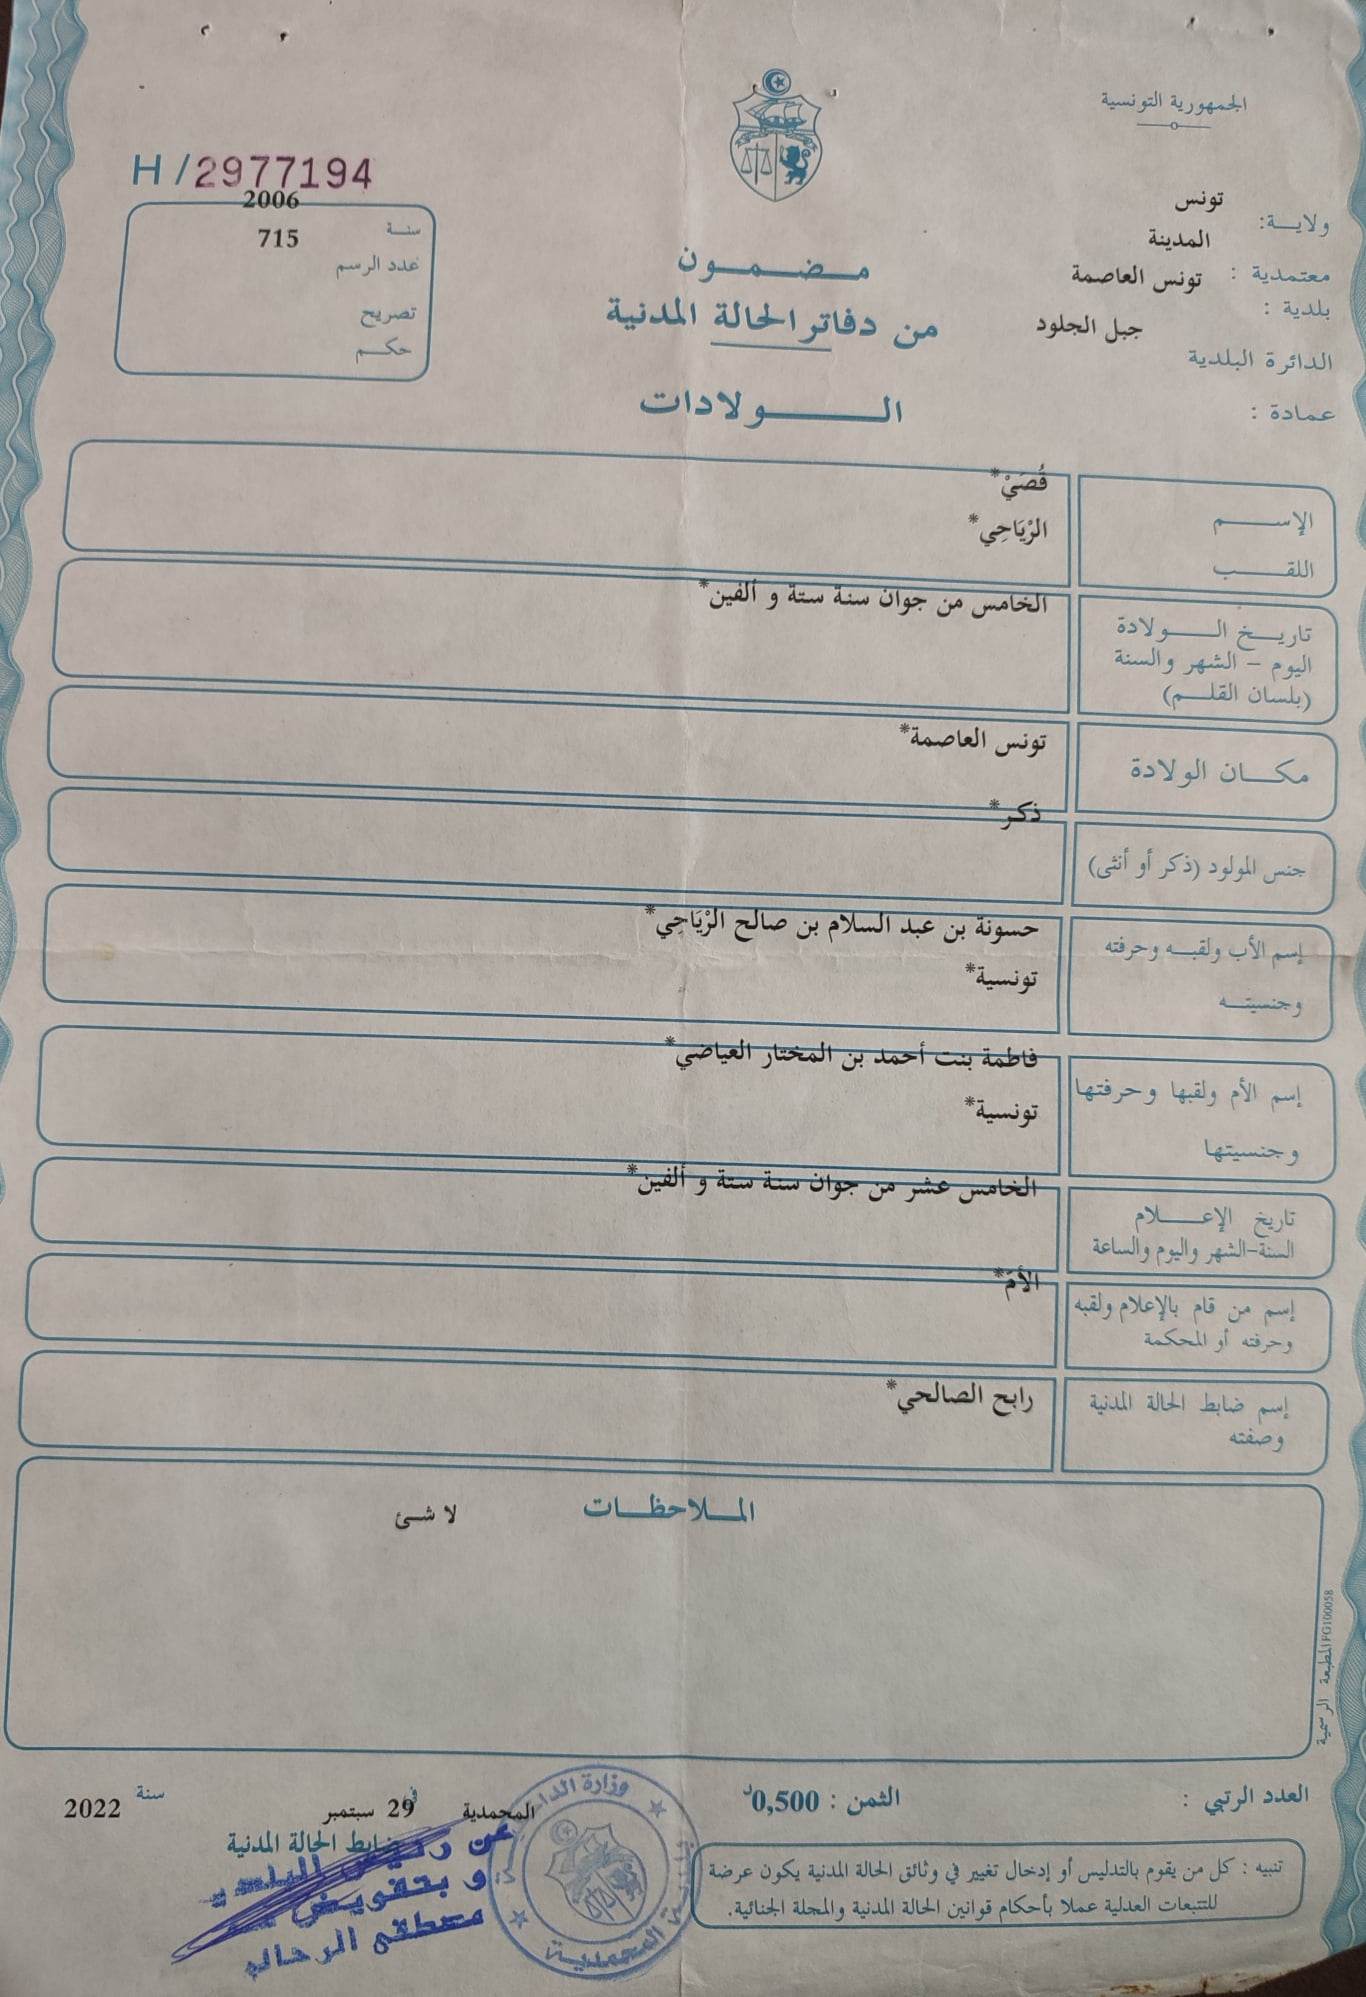 الجمهورية التونسية
ولايـــة: تونس
معتمدية : المدينة
بلدية : تونس العاصمة
الدائرة البلدية جبل الجلود
عمادة :
H/2977194
سنــة 2006
عدد الرسم 715
تصريح
حكــم
مـضـمـون
من دفاتر الحالة المدنية
الـــولادات
الإســـم قُصَيْ*
اللقـــب الرْيَاحِي*
تاريـخ الـــولادة الخامس من جوان سنة ستة و ألفين*
اليوم - الشهر والسنة
(بلسان القلـــم)
مكـــان الولادة تونس العاصمة*
جنس المولود (ذكر أو أنثى) ذكر*
إسم الأب ولقبــه وحرفته حسونة بن عبد السلام بن صالح الرْيَاحِي*
وجنسيتــه تونسية*
إسم الأم ولقبها وحرفتها فاطمة بنت أحمد بن المختار العياضي*
وجنسيتها تونسية*
تاريخ الإعـــلام الخامس عشر من جوان سنة ستة و ألفين*
السنة-الشهر واليوم والساعة
إسم من قام بالإعلام ولقبه الأم*
وحرفته أو المحكمة
إسم ضابط الحالة المدنية رابح الصالحي*
وصفته
المــلاحظــات لا شئ
المطبعة الرسمية FG100058
العدد الرتبي :
الثمن : 0,500د
المحمدية في 29 سبتمبر سنة 2022
ضابط الحالة المدنية
عن رئيس البلدية
و بتفويض منه
مصطفى الرحالي
وزارة الداخلية
المحمدية
تنبيه : كل من يقوم بالتدليس أو إدخال تغيير في وثائق الحالة المدنية يكون عرضة
للتتبعات العدلية عملا بأحكام قوانين الحالة المدنية والمجلة الجنائية.